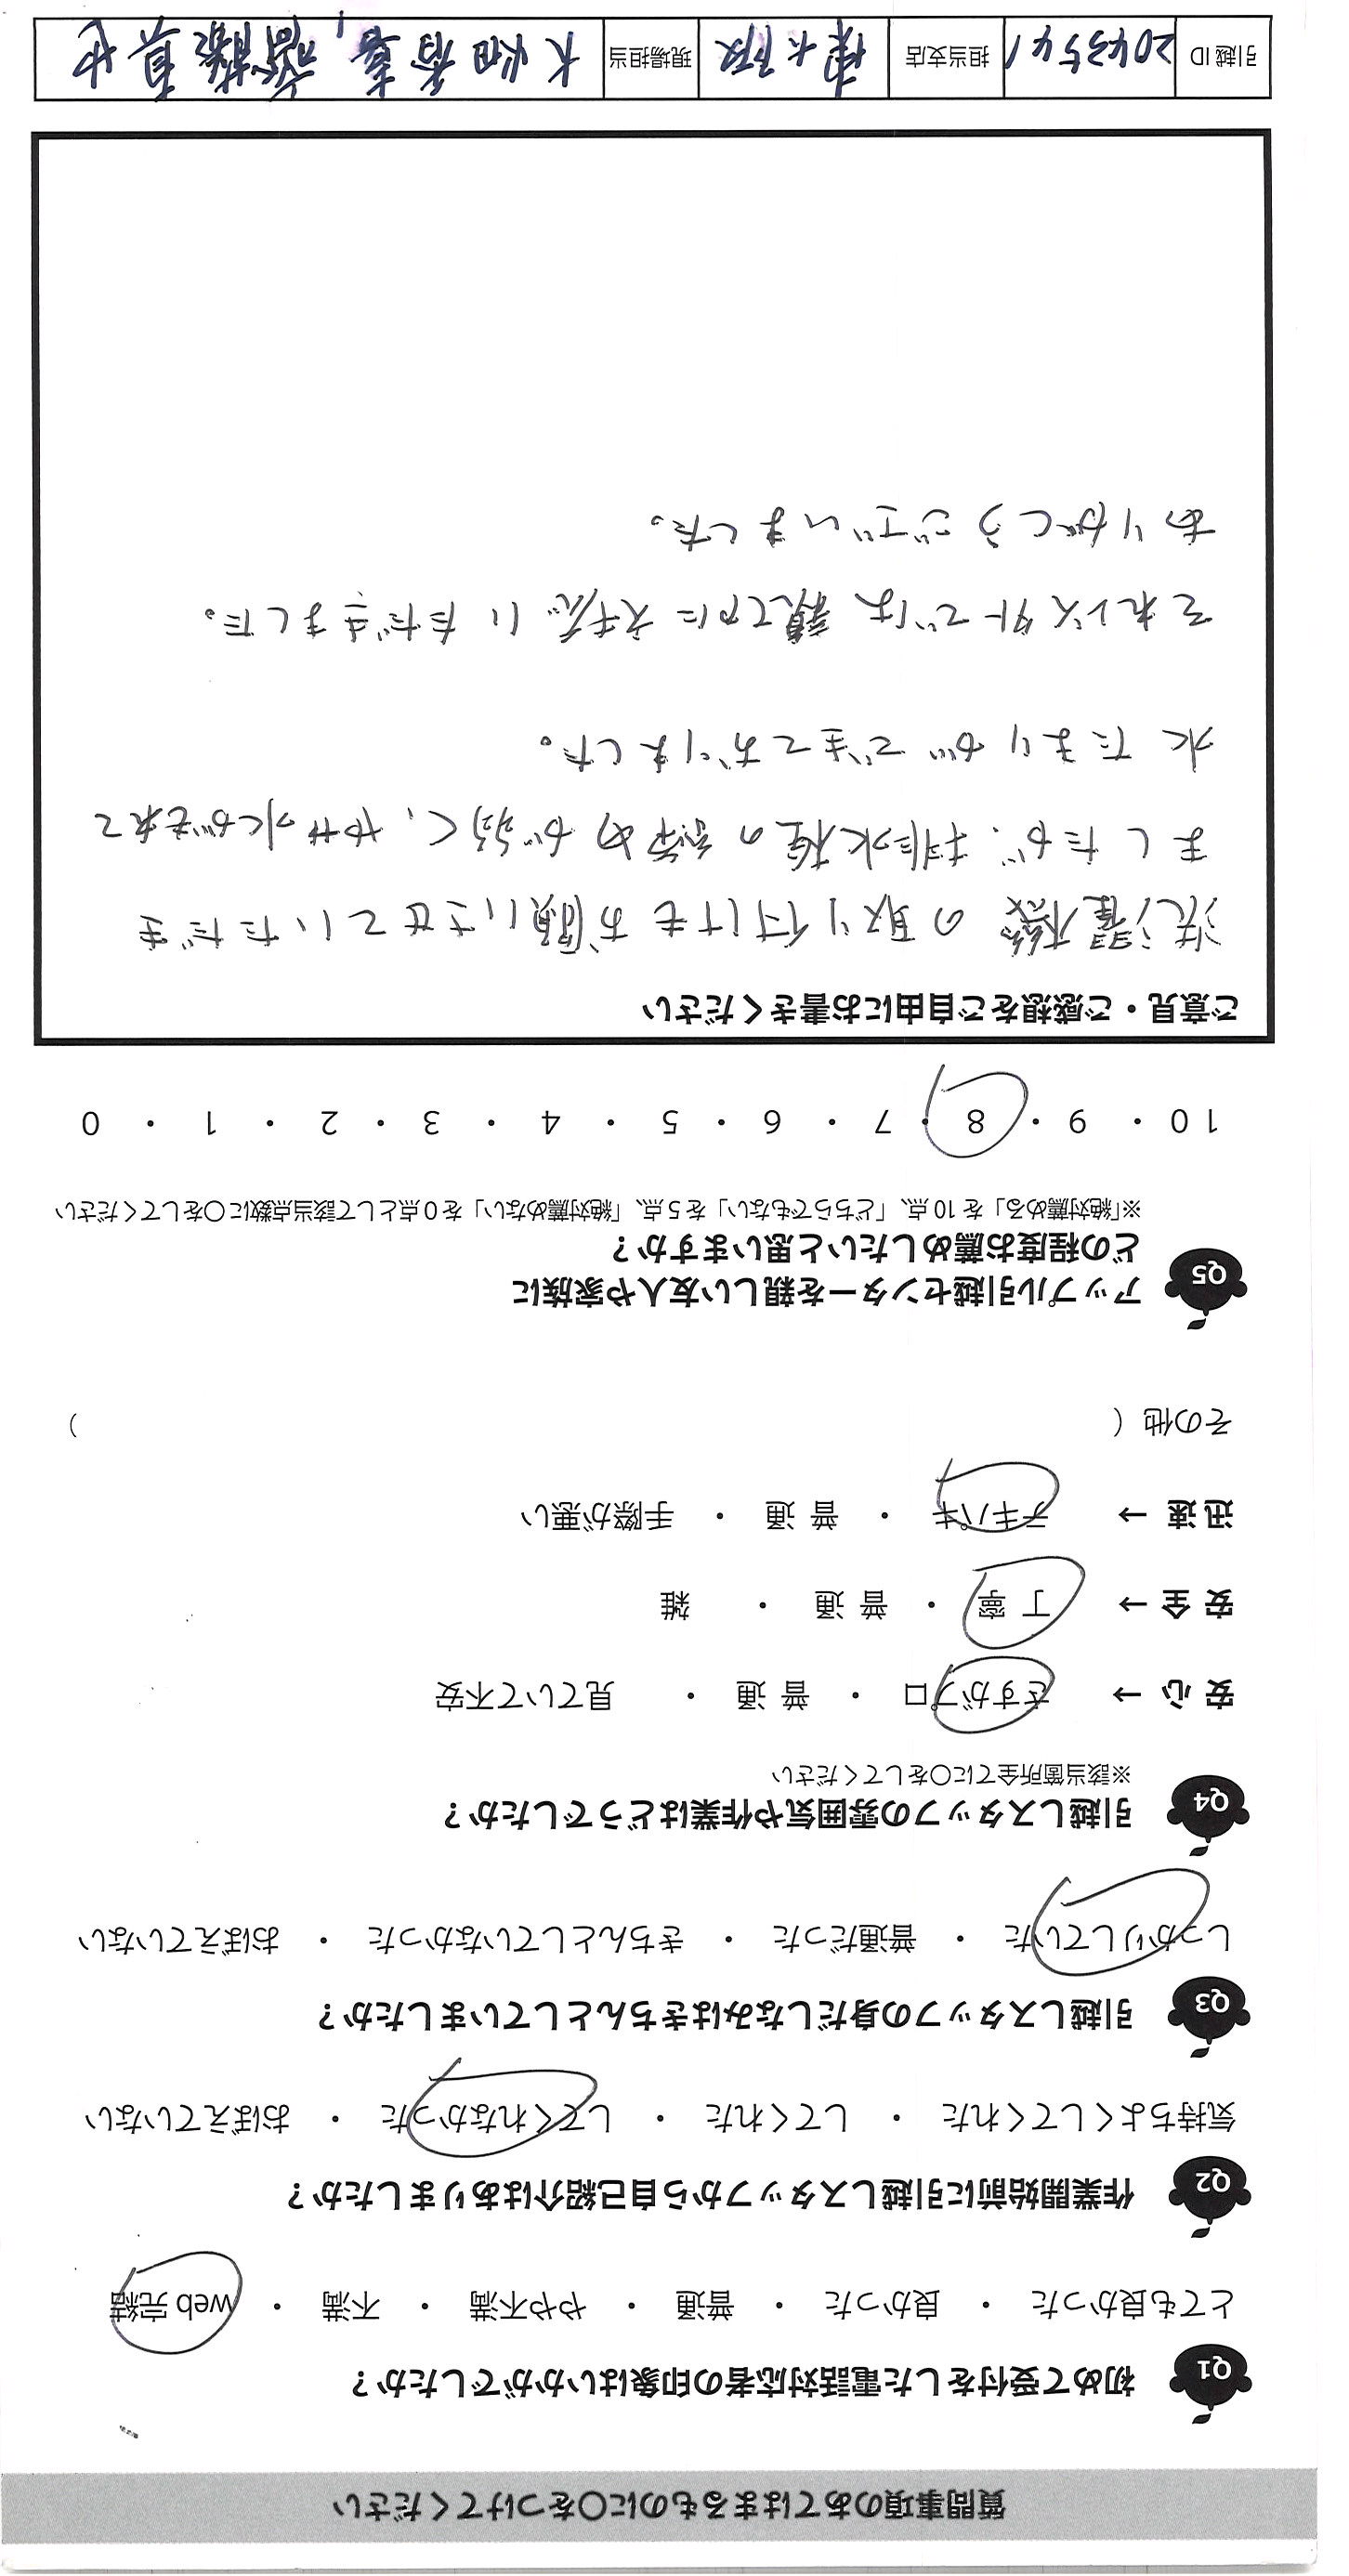 質問事項のあてはまるものに○をつけてください
Q1 初めて受付をした電話対応者の印象はいかがでしたか？
とても良かった ・ 良かった ・ 普通 ・ やや不満 ・ 不満 ・ web 完結
Q2 作業開始前に引越しスタッフから自己紹介はありましたか？
気持ちよくしてくれた ・ してくれた ・ してくれなかった ・ おぼえていない
Q3 引越しスタッフの身だしなみはきちんとしていましたか？
しっかりしていた ・ 普通だった ・ きちんとしていなかった ・ おぼえていない
Q4 引越しスタッフの雰囲気や作業はどうでしたか？
※該当箇所全てに○をしてください
安 心 → さすがプロ ・ 普 通 ・ 見ていて不安
安 全 → 丁 寧 ・ 普 通 ・ 雑
迅 速 → テキパキ ・ 普 通 ・ 手際が悪い
その他（ ）
Q5 アップル引越センターを親しい友人や家族に
どの程度お薦めしたいと思いますか？
※「絶対薦める」を 10 点、「どちらでもない」を 5 点、「絶対薦めない」を 0 点として該当点数に○をしてください
10 ・ 9 ・ 8 ・ 7 ・ 6 ・ 5 ・ 4 ・ 3 ・ 2 ・ 1 ・ 0
ご意見・ご感想をご自由にお書きください
洗濯機の取り付けもお願いさせていただき
ましたが、排水栓の締めが弱く、やや水がもれて
水たまりができておりました。
それ以外では、親切に対応いただきました。
ありがとうございました。
引越 ID 2043541 担当支店 東大阪 現場担当 大畑 斎藤真也